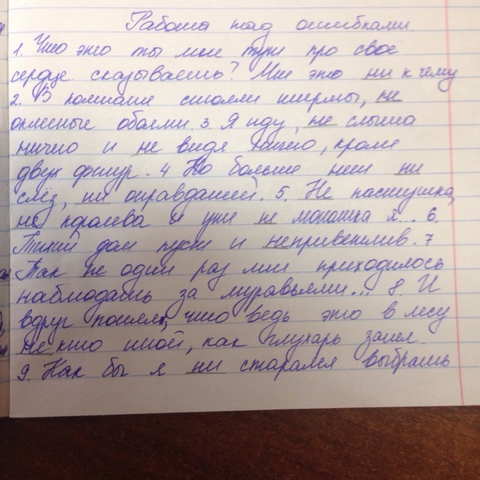 Работа над ошибками.
1. Что это ты мне тут про свое
сердце сказываешь? Мне это ни к чему
2. В комнате стояли ширмы, не
оклееные обоями. 3. Я иду, не слыша
ничего и не видя ничего, кроме
двух фигур. 4 Но больше нет ни
слёз, ни оправданий. 5. Не пастушка,
не королева и уже не монашка я... 6.
Тихий дом пуст и неприветлив. 7
Так не один раз мне приходилось
наблюдать за муравьями... 8. И
вдруг понял, что ведь это в лесу
не кто иной, как глухарь запел.
9. Как бы я ни старался выбрать